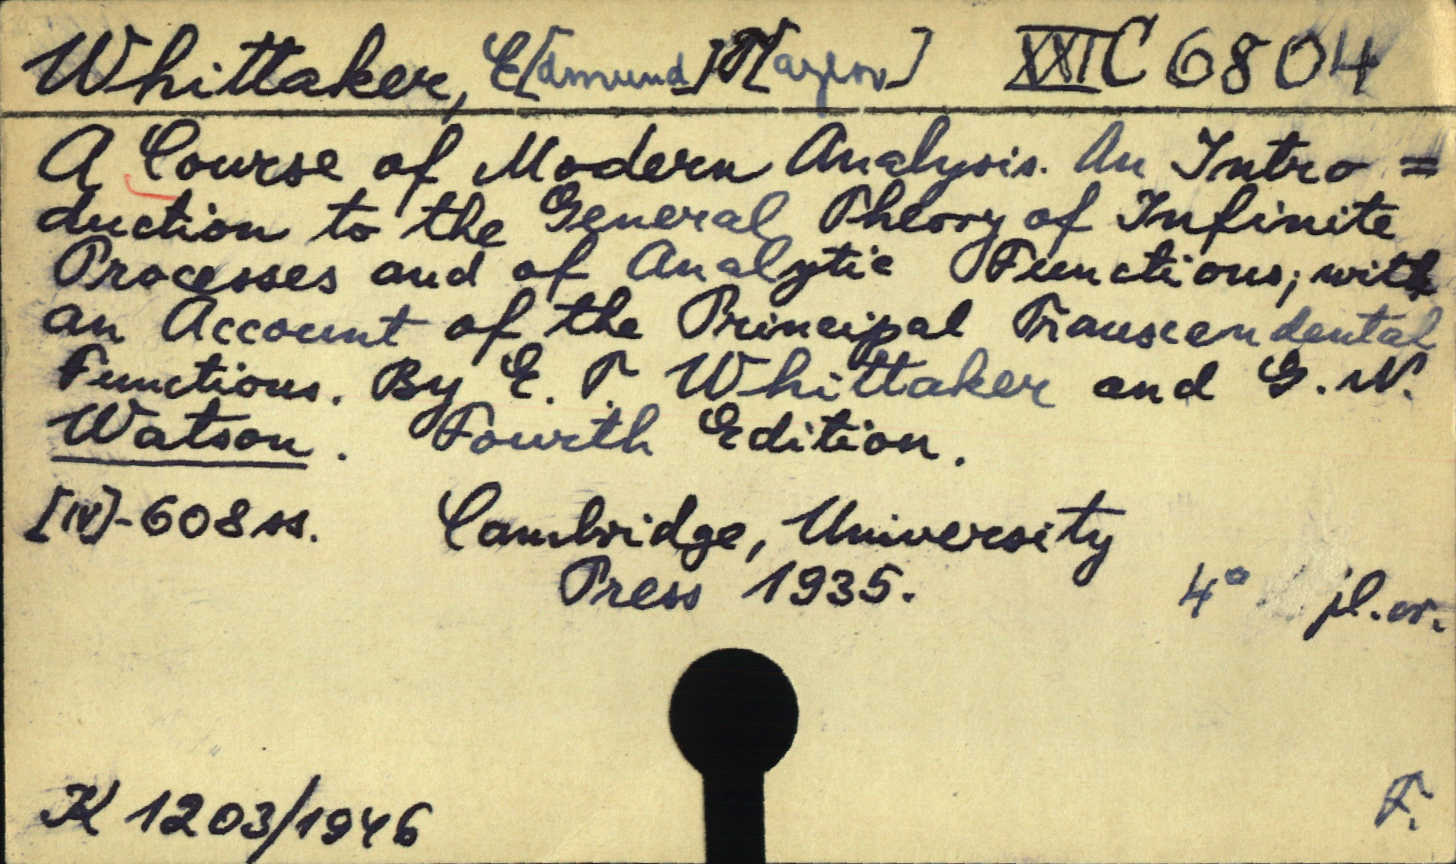 Whittaker, E[dmund] T[aylor] XXI C 6804
A Course of Modern Analysis. An Intro=
duction to the General Theory of Infinite
Processes and of Analytic Functions; with
an Account of the Principal Transcendental
Functions. By E. T. Whittaker and G. N.
Watson. Fourth Edition.
[IV]-608 ss. Cambridge, University
Press 1935. 4° pl. or.
K 1203/1946 F.